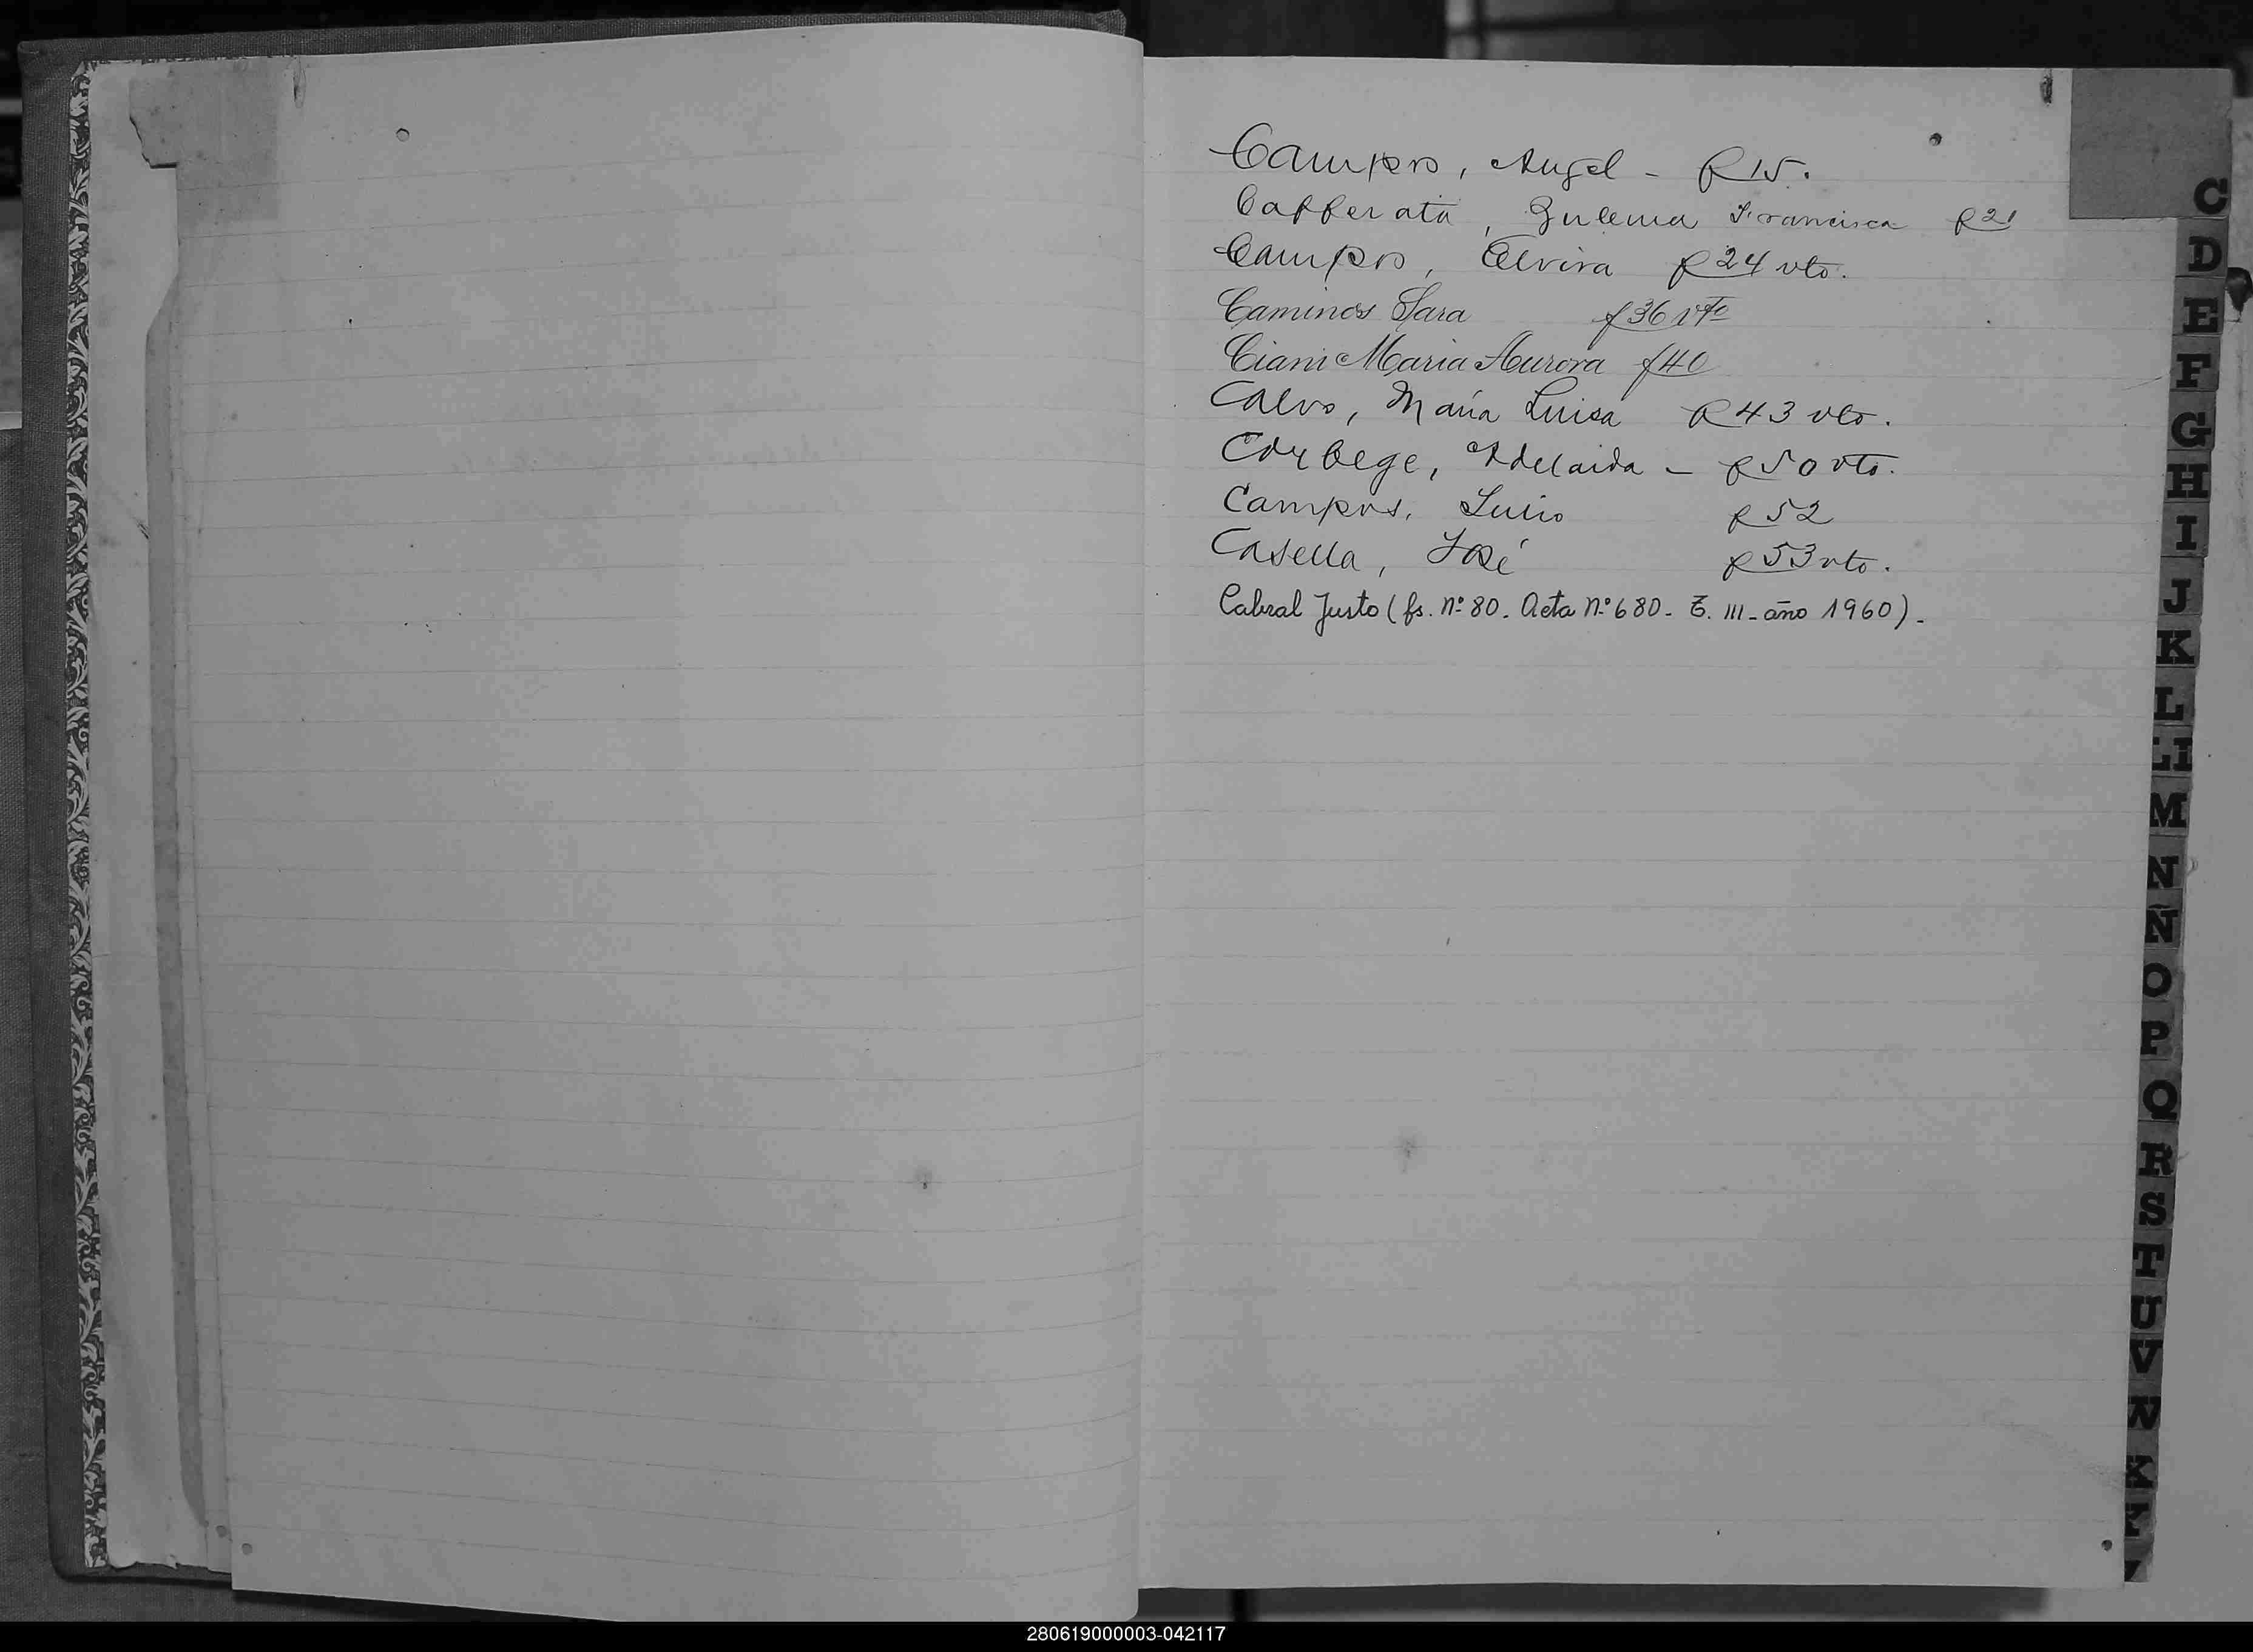 Campos, Angel - f 15.
Cafferata, Zulema Francisca f 21
Campos, Elvira f 24 vto.
Caminos Sara f 36 vto
Ciani Maria Aurora f 40
Calvo, María Luisa f 43 vto.
Adelaida - f 50 vto.
Campos, Lucio f 52
Casella, José f 53 vto.
Cabral Justo (fs. Nº 80. Acta Nº 680 - T. III - año 1960).-
C
D
E
F
G
H
I
J
K
L
LL
M
N
Ñ
O
P
Q
R
S
T
U
V
W
280619000003-042117